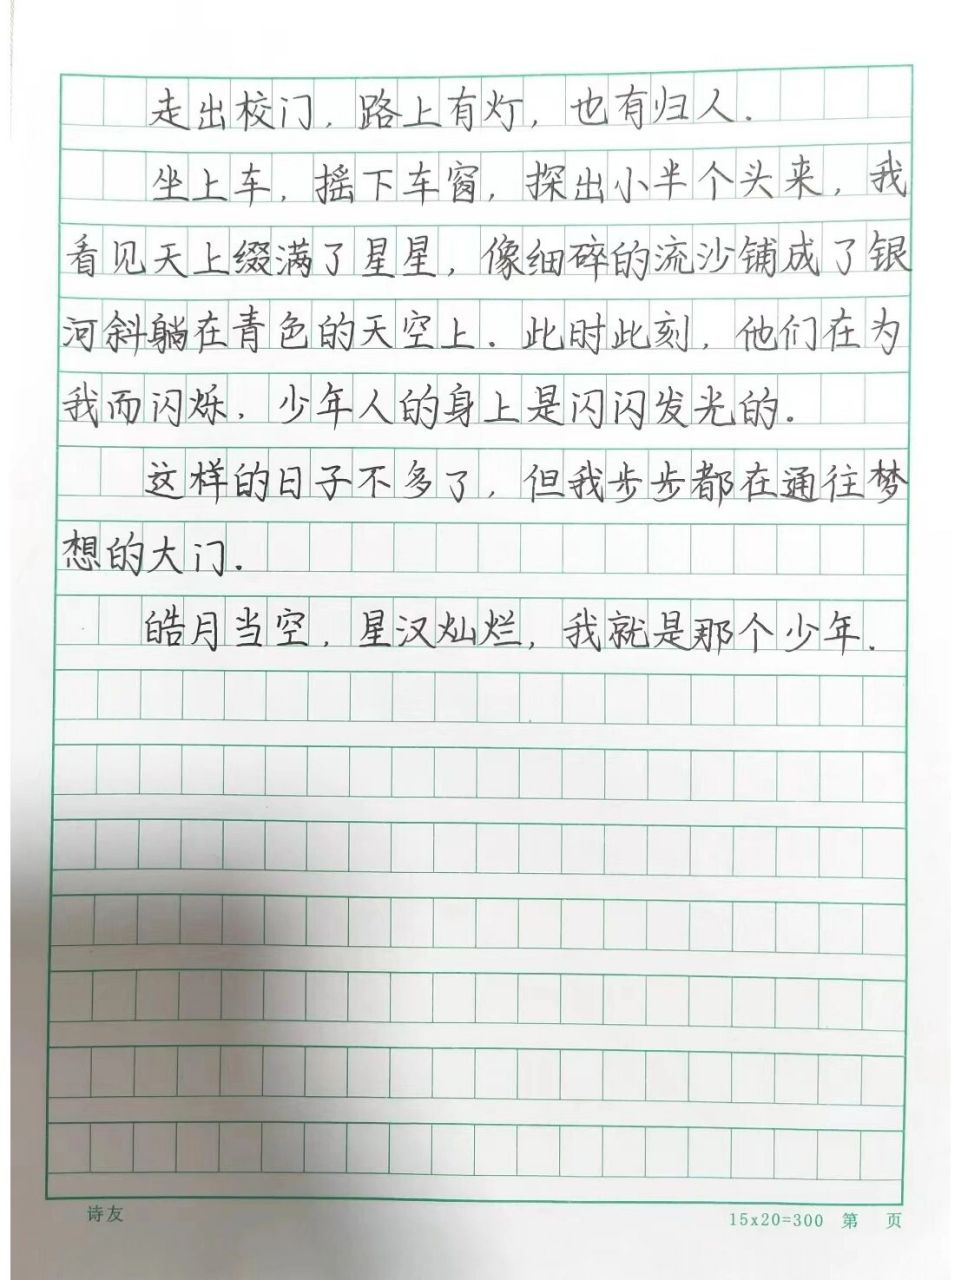 走出校门，路上有灯，也有归人.
坐上车，摇下车窗，探出小半个头来，我
看见天上缀满了星星，像细碎的流沙铺成了银
河斜躺在青色的天空上.此时此刻，他们在为
我而闪烁，少年人的身上是闪闪发光的.
这样的日子不多了，但我步步都在通往梦
想的大门.
皓月当空，星汉灿烂，我就是那个少年.
诗友
15x20=300 第 页